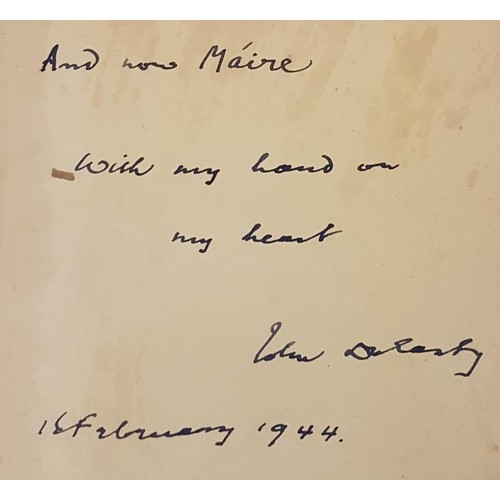 And now Máire
With my hand on
my heart
John
February 1944.